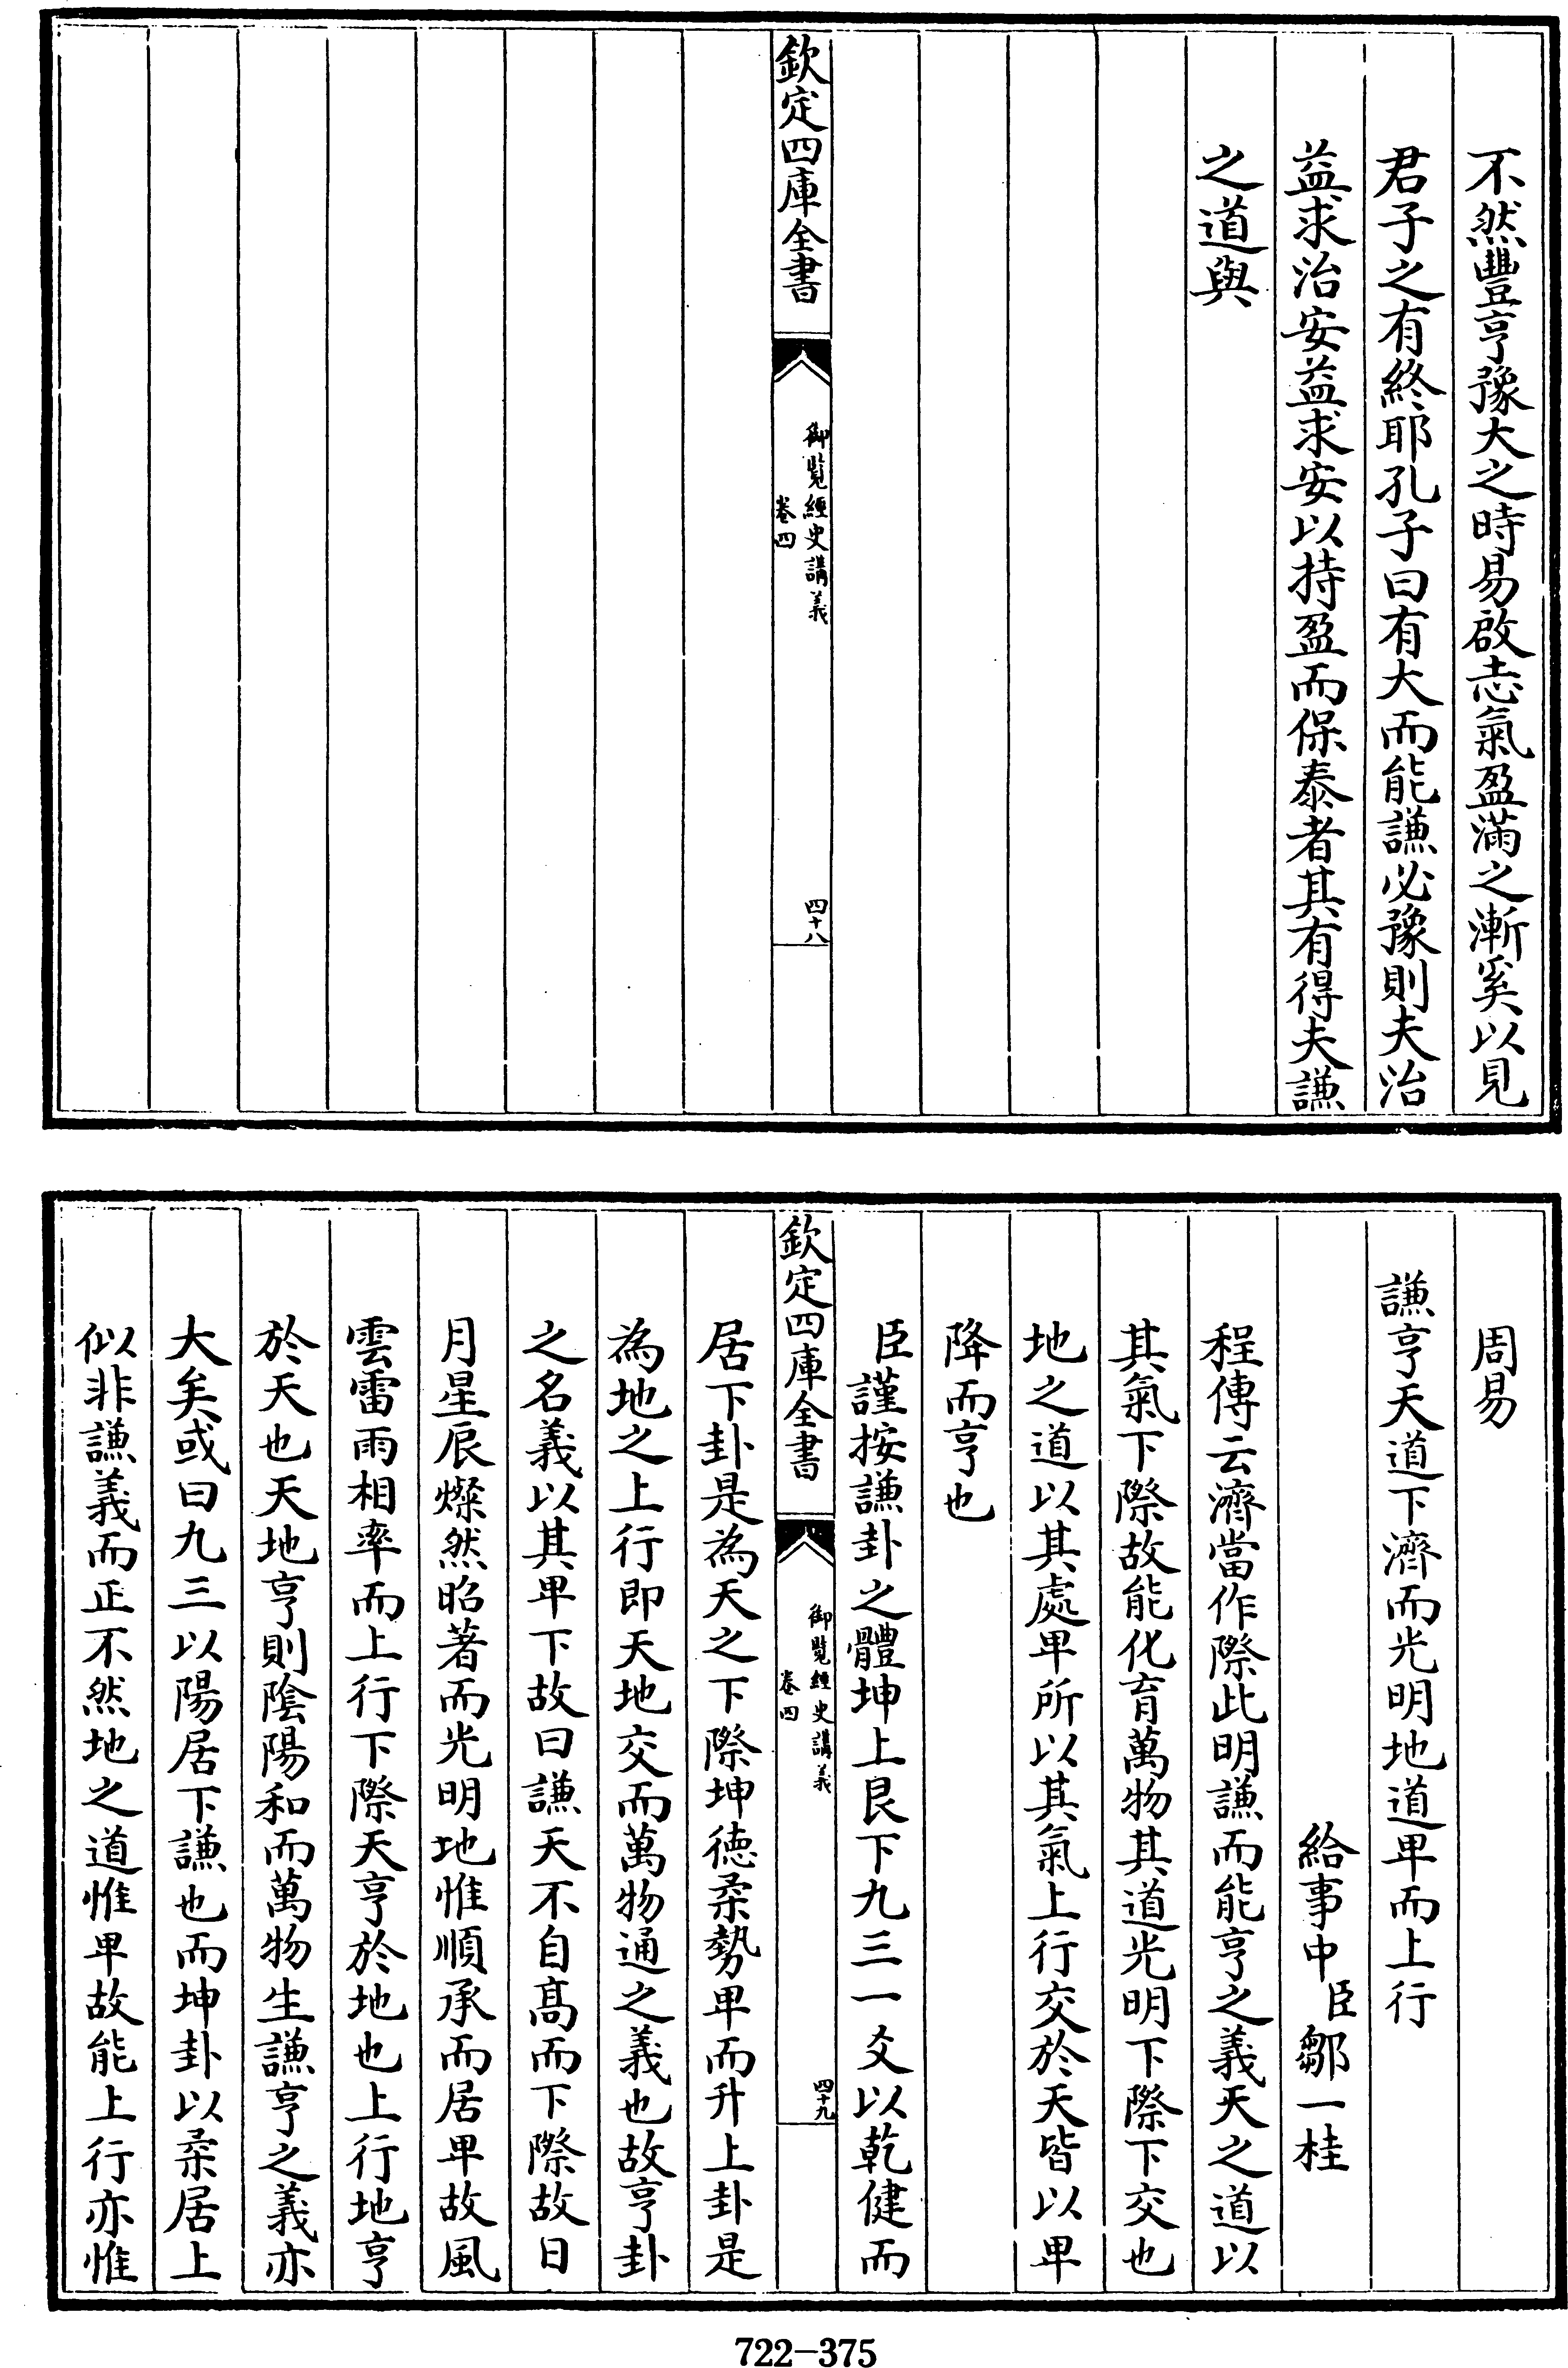 不然豐亨豫大之時易啟志氣盈滿之漸奚以見
君子之有終耶孔子曰有大而能謙必豫則夫治
益求治安益求安以持盈而保泰者其有得夫謙
之道與
欽定四庫全書
御覽經史講義
卷四
四十八
周易
謙亨天道下濟而光明地道卑而上行
給事中臣鄒一桂
程傳云濟當作際此明謙而能亨之義天之道以
其氣下際故能化育萬物其道光明下際下交也
地之道以其處卑所以其氣上行交於天皆以卑
降而亨也
臣謹按謙卦之體坤上艮下九三一爻以乾健而
欽定四庫全書
御覽經史講義
卷四
四十九
居下卦是為天之下際坤德柔勢卑而升上卦是
為地之上行即天地交而萬物通之義也故亨卦
之名義以其卑下故曰謙天不自髙而下際故日
月星辰燦然昭著而光明地惟順承而居卑故風
雲雷雨相率而上行下際天亨於地也上行地亨
於天也天地亨則隂陽和而萬物生謙亨之義亦
大矣或曰九三以陽居下謙也而坤卦以柔居上
似非謙義而正不然地之道惟卑故能上行亦惟
722-375